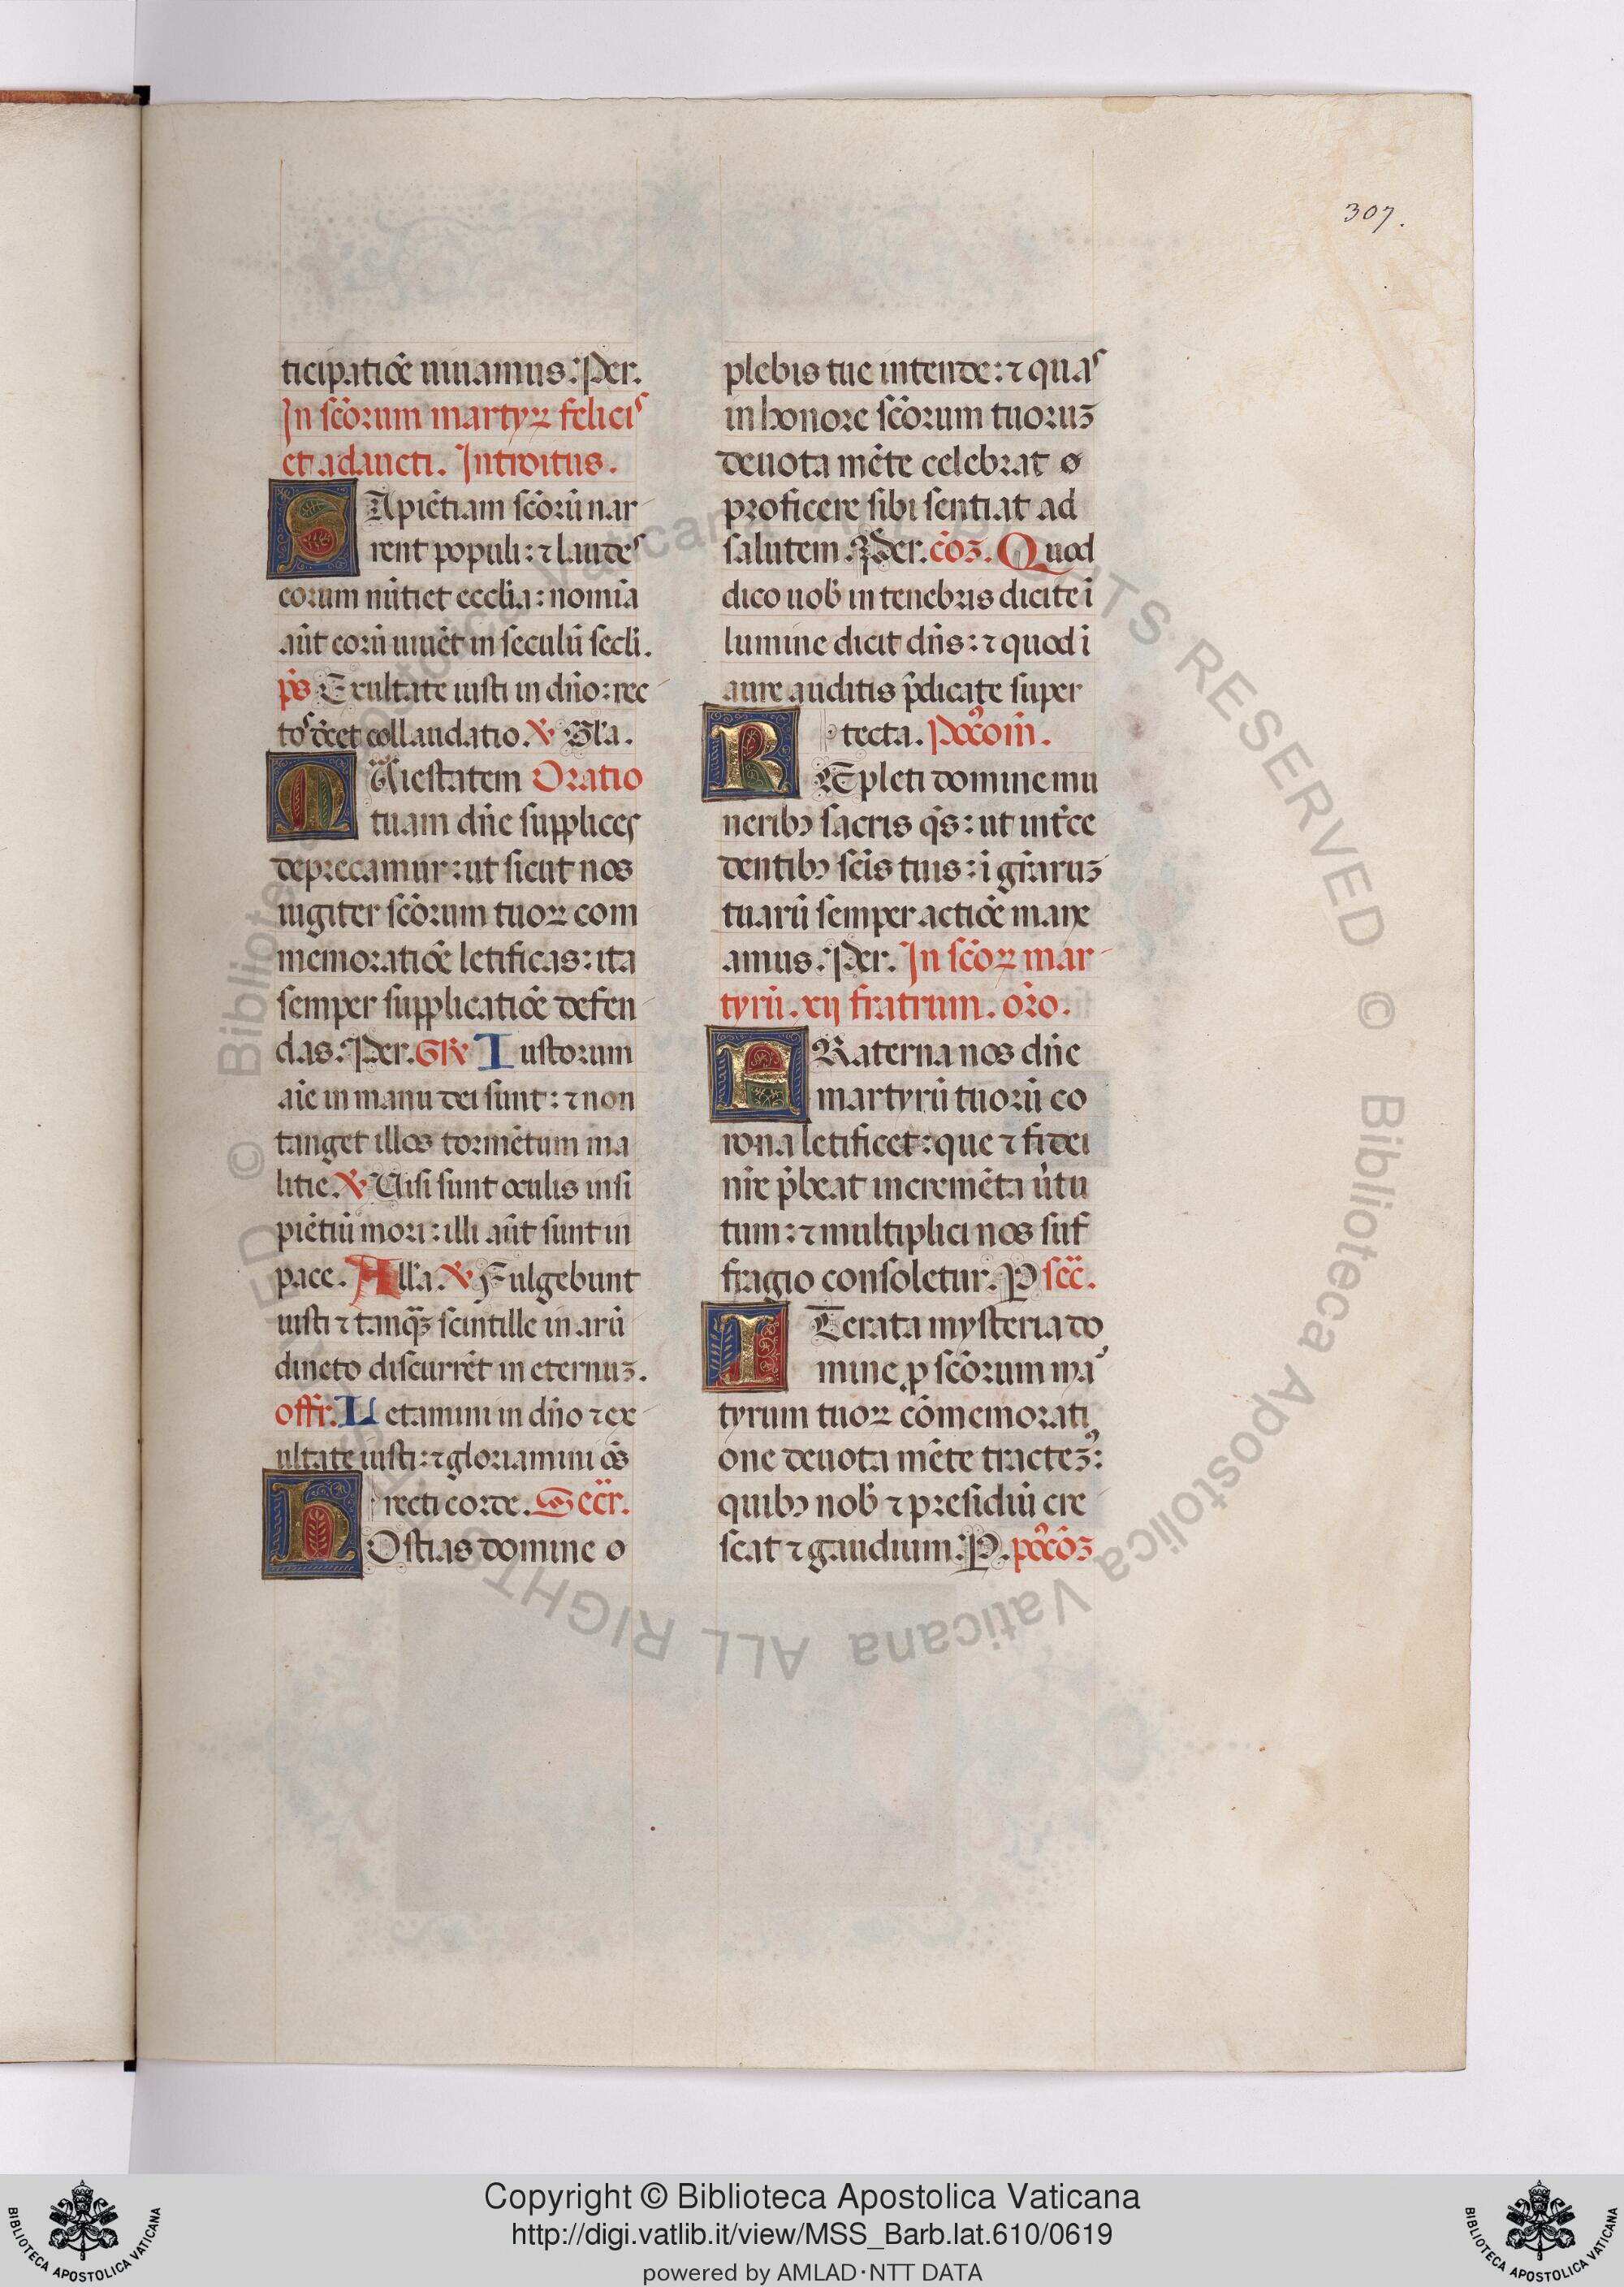 307.
ticipatiōe uiuamus: Per.
In scōrum martyrꝝ felicis
et adaucti. Introitus.
SApiētiam scōrū nar
rent populi: ⁊ laudes
eorum nūtiet ecclīa: nomīa
aūt eorū uiuēt in seculū secli.
p̄s Exultate iusti in dn̄o: rec
tos dēcet collaudatio. ℣ Gl̄a.
MAiestatem Oratio
tuam dn̄e supplices
deprecamur: ut sicut nos
iugiter scōrum tuoꝝ com
memoratiōe letificas: ita
semper supplicatiōe defen
das. Per. GR̄ Iustorum
aīe in manu dei sunt: ⁊ non
tanget illos tormētum ma
litie. ℣ Uisi sunt oculis insi
piētiū mori: illi aūt sunt in
pace. All̄a. ℣ Fulgebunt
iusti ⁊ tanqȝ scintille in arū
dineto discurrēt in eternuȝ.
offr̄. Letamini in dn̄o ⁊ ex
ultate iusti: ⁊ gloriamini ōs
recti corde. Secr̄.
hOstias domine
plebis tue intende: ⁊ quas
in honore scōrum tuoruȝ
deuota mēte celebrat
proficere sibi sentiat ad
salutem. Per. cōȝ. Quod
dico uob̄ in tenebris dicite ī
lumine dicit dn̄s: ⁊ quod ī
aure auditis p̄dicate super
tecta. Pꝰcoīn̄.
REpleti domine mu
neribꝫ sacris q̄s: ut int̄ce
dentibꝫ scīs tuis: ī gr̄aruȝ
tuarū semper actiōe mane
amus. Per. In scōꝝ mar
tyrū. xij fratrum. or̄o.
FRaterna nos dn̄e
martyrū tuorū co
rona letificet: que ⁊ fidei
nr̄e p̄beat incremēta ūtu
tum: ⁊ multiplici nos suf
fragio consoletur. P sec̄.
ITerata mysteria do
mine ꝓ scōrum mar
tyrum tuoꝝ cōmemorati
one deuota mēte tracteȝ:
quibꝫ nob̄ ⁊ presidiū cre
scat ⁊ gaudium. P. pꝰcōȝ
© Biblioteca Apostolica Vaticana ALL RIGHTS RESERVED © Biblioteca Apostolica Vaticana ALL RIGHTS RESERVED
Copyright © Biblioteca Apostolica Vaticana
http://digi.vatlib.it/view/MSS_Barb.lat.610/0619
powered by AMLAD·NTT DATA
BIBLIOTECA APOSTOLICA VATICANA
BIBLIOTECA APOSTOLICA VATICANA